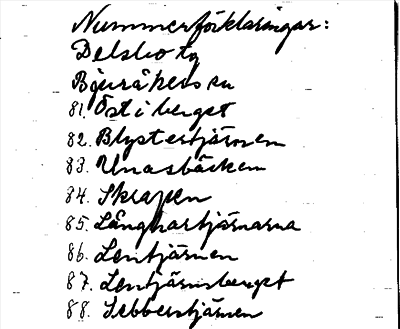 Nummerförklaringar:
Delsbo tg
Bjuråkers sn
81. Öst i berget
82. Blystertjärnen
83. Unasbäcken
84. Skrapen
85. Långhartjärnarna
86. Lentjärnen
87. Lentjärnsberget
88. Sebberstjärnen